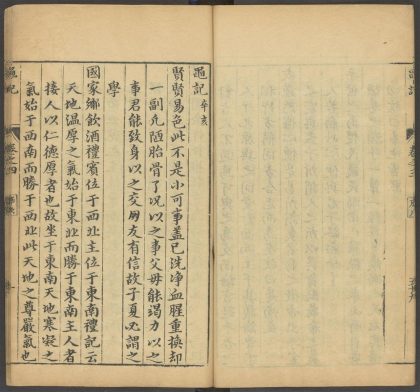 黽記 辛亥
賢賢易色此不是小可事蓋已洗净血腥重換却
一副凢陋胎骨了况以之事父母能竭力以之
事君能致身以之交朋友有信故子夏必謂之
學
國家鄉飲酒禮賓位于西北主位于東南禮記云
天地温厚之氣始于東北而勝于東南主人者
接人以仁德厚者也故坐于東南天地寒凝之
氣始于西南而勝于西北此天地之尊嚴氣也
黽記 卷之四